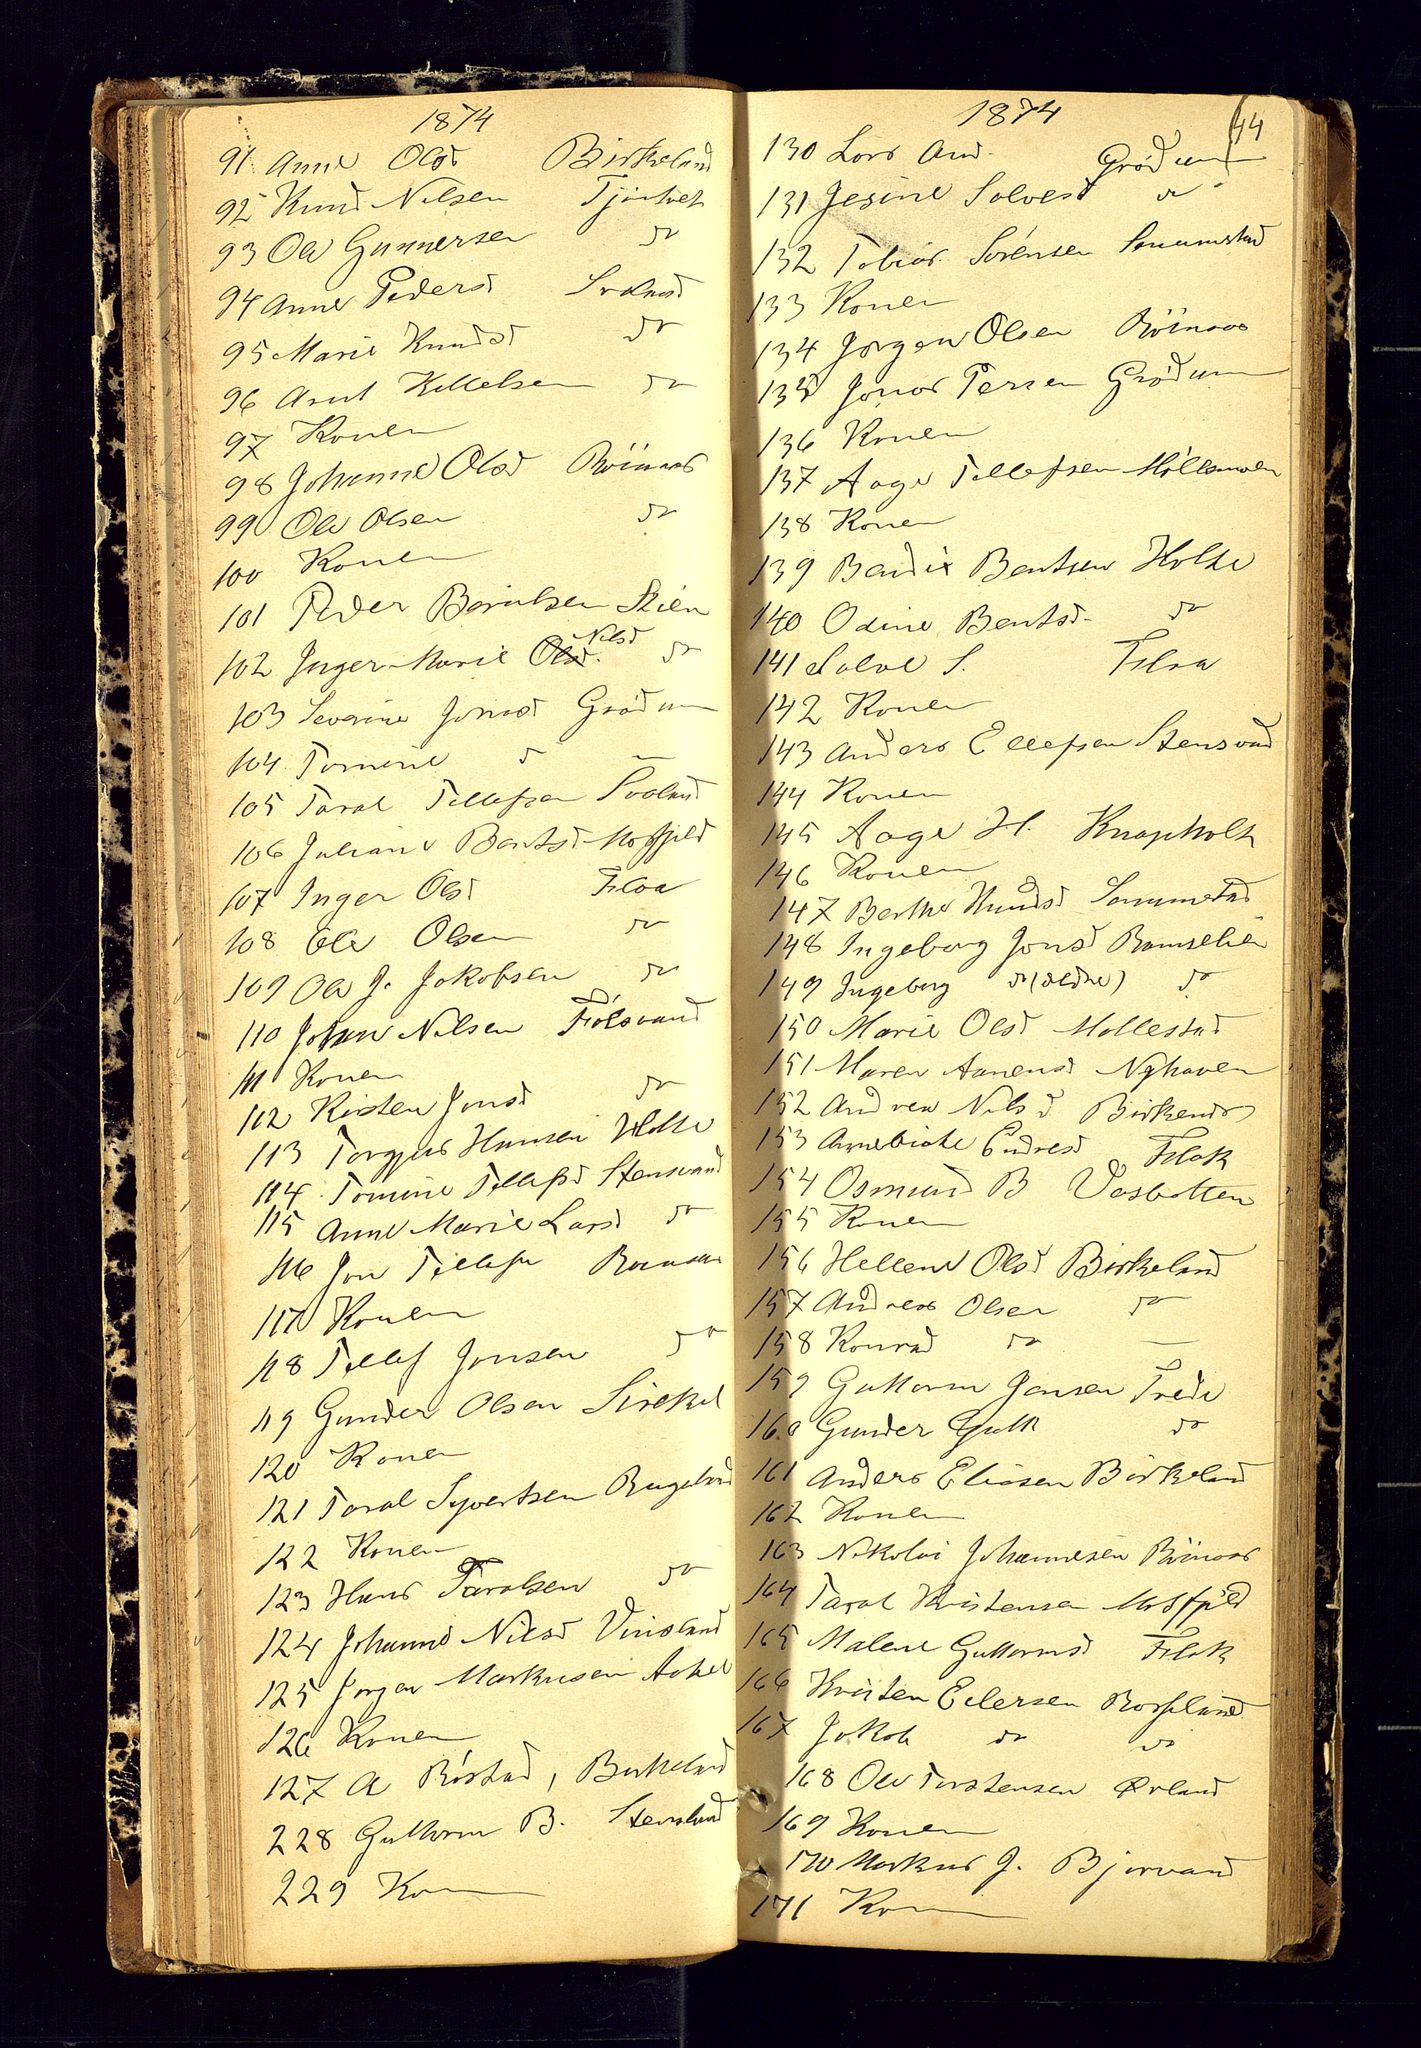 1874
91 Anne Olsd Birkeland
92 Knud Nilsen Tjøntvet
93 Ole Gunnersen do
94 Anne Pedersd Svaland
95 Marie Knudsd do
96 Arnt Kittelsen do
97 Konen
98 Johanne Olsd Röinaas
99 Ole Olsen do
100 Konen
101 Peder Berntsen Skien
102 Inger Marie Nilsd do
103 Severine Jonsd Grödum
104 Tomine d —
105 Taral Tellefsen Svaland
106 Juliane Bentsd Mosfjeld
107 Inger Olsd Flaa
108 Ole Olsen do
109 Ole J. Jakobsen do
110 Johan Nilsen Fidsvand
111 Konen
112 Kisten Jonsd do
113 Torgjus Hansen Holte
114 Tomine Tellefsd Stensvand
115 Anne Marie Larsd do
116 Jon Tellefsen
117 Konen
118 Tellef Jonsen do
119 Gunder Olsen Sirekil
120 Konen
121 Taral Syvertsen Rugeland
122 Konen
123 Hans Taralsen do
124 Johanne Nilsd Vinsland
125 Jørgen Markusen
126 Konen
127 A Røstad, Birkeland
228 Guttorm B. Stensland
229 Kon
1874 44
130 Lars And. Grødum
131 Jesine Solvesd do
132 Tobias Sørensen Sennumstad
133 Konen
134 Jørgen Olsen Röinaas
135 Jonas Persen Grödum
136 Konen
137 Aage Tellefsen Möllemoen
138 Konen
139 Bendix Bentsen Holte
140 Odine Bentsd do
141 Salve S. Flaa
142 Konen
143 Anders Ellefsen Stensvand
144 Konen
145 Aage H. Knapholt
146 Konen
147 Berthe Knudsd Sennumstad
148 Ingeborg Jonsd Ramselien
149 Ingeborg do (ældre) do
150 Marie Olsd Mollestad
151 Maren Aanensd Nyhaven
152 Andrea Nilsd Birkenes
153 Annebirte Endresd Flak
154 Osmund B Vasbotten
155 Konen
156 Hellene Olsd Birkeland
157 Andreas Olsen do
158 Konrad do —
159 Guttorm Jensen Trede
160 Gunder Gutt do
161 Anders Eliasen Birkeland
162 Konen
163 Nikolai Johannesen Röinaas
164 Taral Kristensen Mosfjeld
165 Malene Guttormsd Flak
166 Kristen Eilersen Rosseland
167 Jakob do do
168 Ole Torstensen Ørland
169 Konen
170 Markus J. Bjorvand
171 Kon